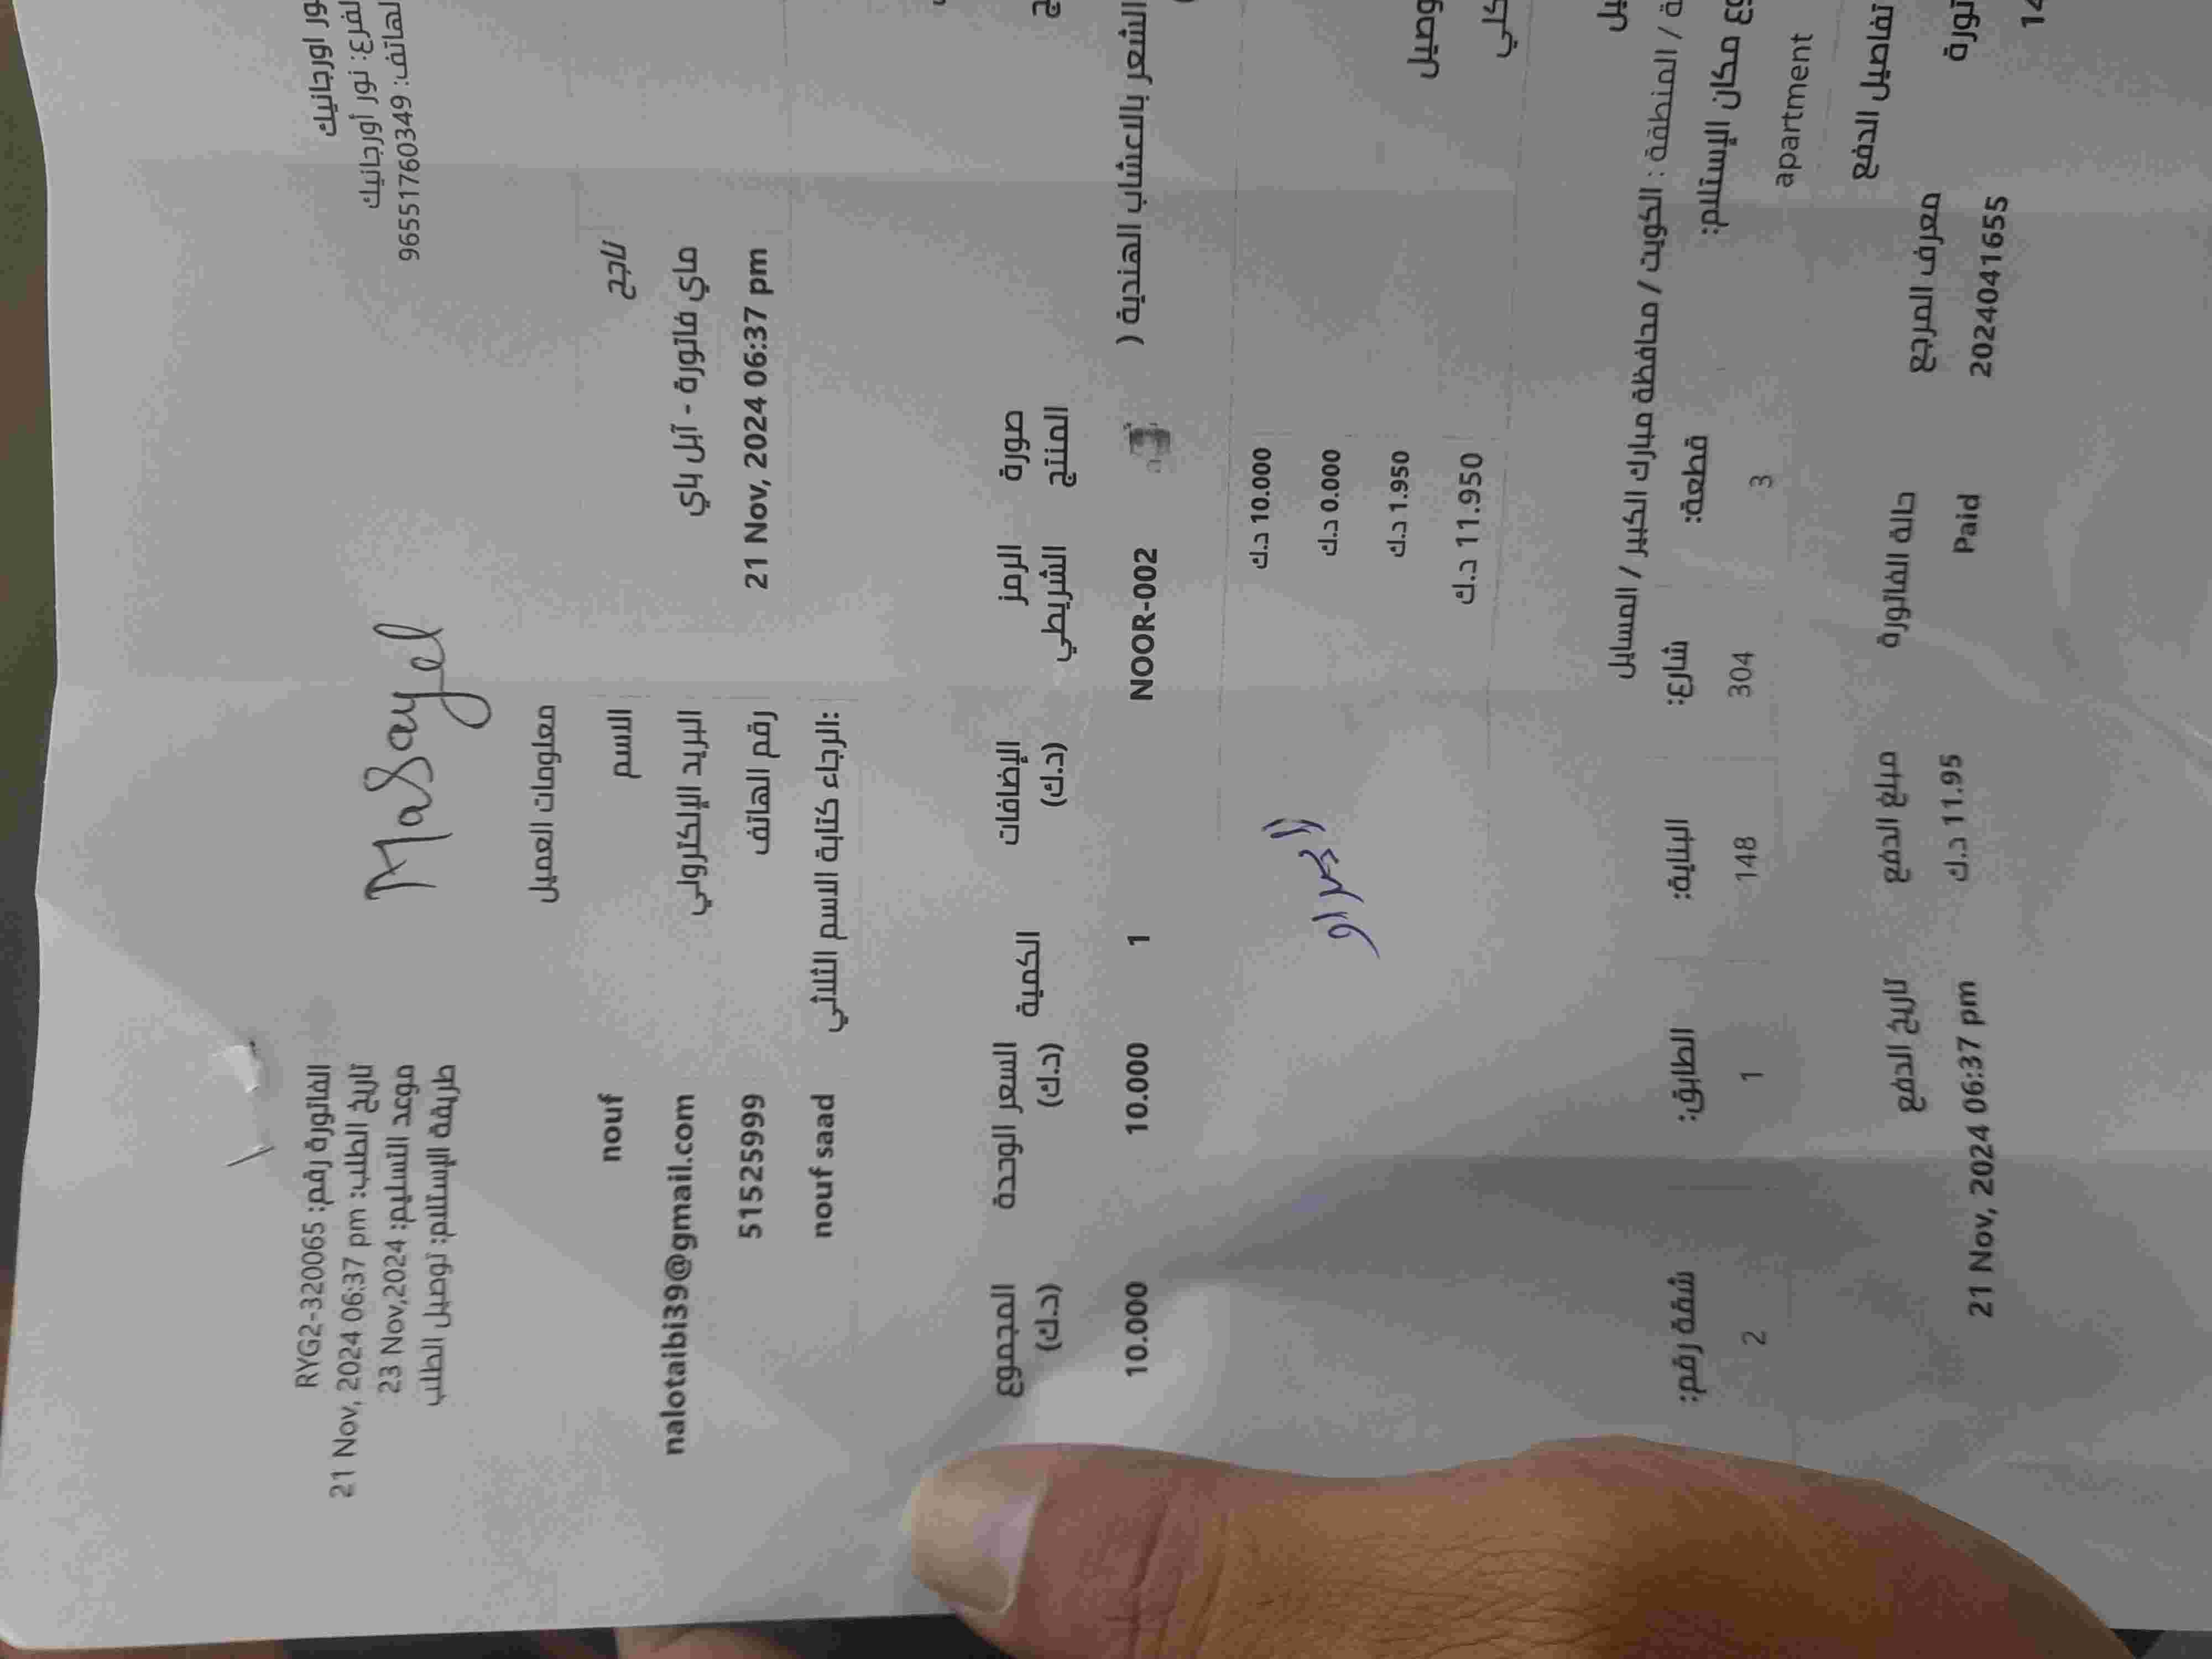 الفاتورة رقم: RYG2-320065
تاريخ الطلب: 21 Nov, 2024 06:37 pm
موعد التسليم: 23 Nov,2024
طريقة الإستلام: توصيل الطلب
ور اورجانيك
لفرع: نور أورجانيك
لهاتف: 96551760349
Masayel
معلومات العميل
الاسم nouf
البريد الإلكتروني nalotaibi39@gmail.com
رقم الهاتف 51525999
الرجاء كتابة الاسم الثلاثي: nouf saad
ناجح
ماي فاتورة - آبل باي
21 Nov, 2024 06:37 pm
صورة المنتج الرمز الشريطي الإضافات (د.ك) الكمية السعر الوحدة (د.ك) المجموع (د.ك)
الشعر بالاعشاب الهندية ( NOOR-002 1 10.000 10.000
10.000 د.ك
0.000 د.ك
وصيل 1.950 د.ك
كلي 11.950 د.ك
يل
ة / المنطقة : الكويت / محافظة مبارك الكبير / المسايل
وع مكان الإستلام: قطعة: شارع: البناية: الطابق: شقة رقم:
apartment 3 304 148 1 2
تفاصيل الدفع
تورة معرف المرجع حالة الفاتورة مبلغ الدفع تاريخ الدفع
14 2024041655 Paid 11.95 د.ك 21 Nov, 2024 06:37 pm